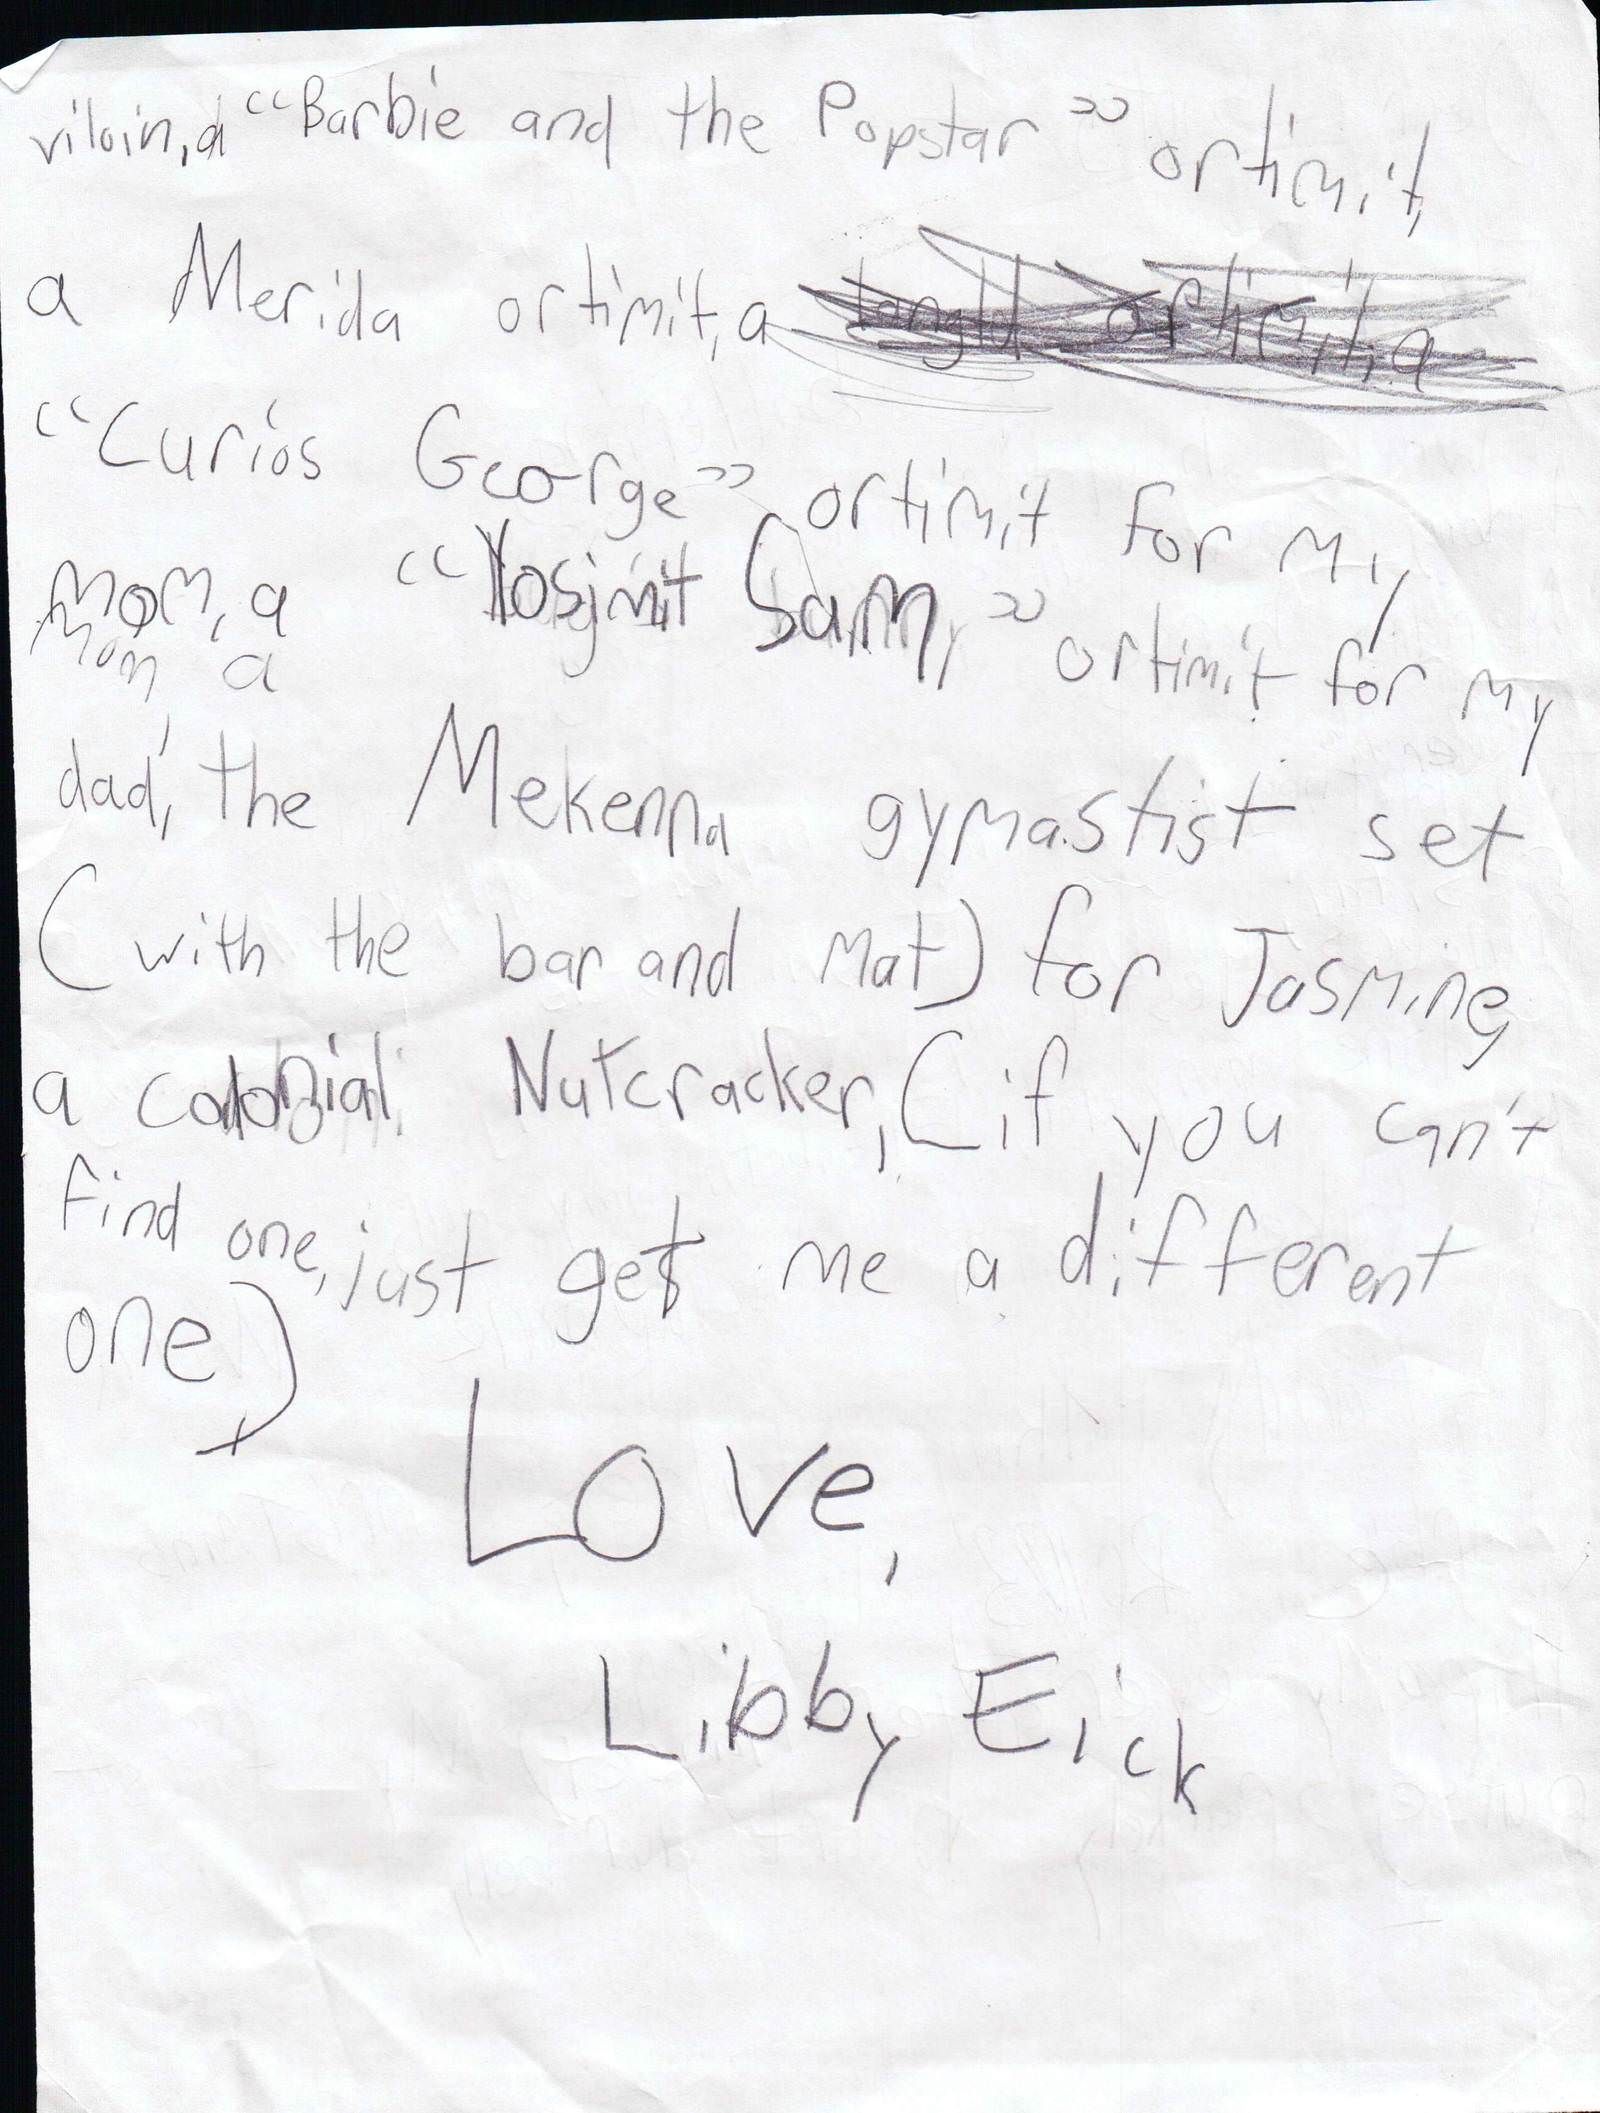 viloin, a "Barbie and the Popstar" ortimit,
a Merida ortimit, a tangld ortimit, a
"Curios George" ortimit for my
mom, a "Yosimit Sam," ortimit for my
mom, a
dad, the Mekenna gymastist set
(with the bar and mat) for Jasmine,
a colonial Nutcracker, (if you can't
find one, just get me a different
one)
Love,
Libby Eick